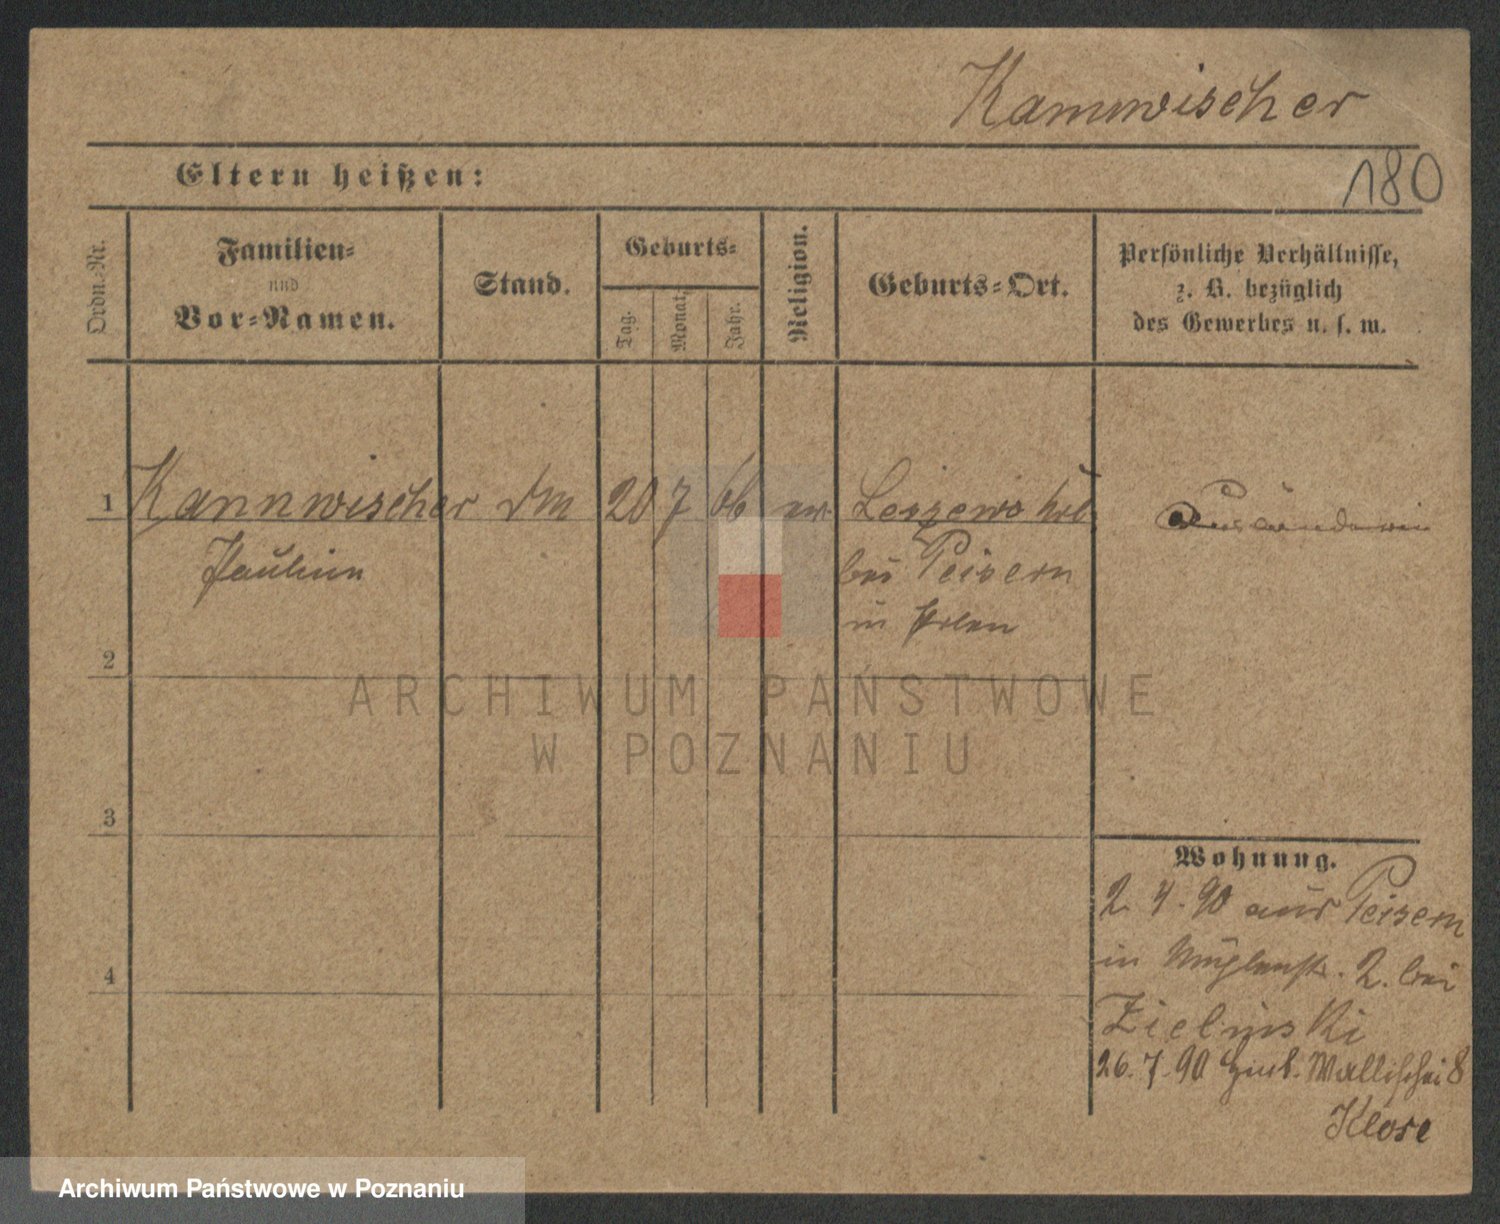 Kammwischer
Eltern heißen:
180
Ordn.-Nr.
Familien-
und
Vor-Namen.
Stand.
Geburts-
Tag.
Monat.
Jahr.
Religion.
Geburts-Ort.
Persönliche Verhältnisse,
z. B. bezüglich
des Gewerbes u. s. w.
1 Kannwischer 20 7 66 ev.
Paulina
bei Peisern
in Polen
2
3
4
Wohnung.
2 4. 90 aus Peisern
in Mühlenstr. 2. bei
Zielinski
26. 7. 90 Wallischei 8
Klose
ARCHIWUM PAŃSTWOWE
W POZNANIU
Archiwum Państwowe w Poznaniu